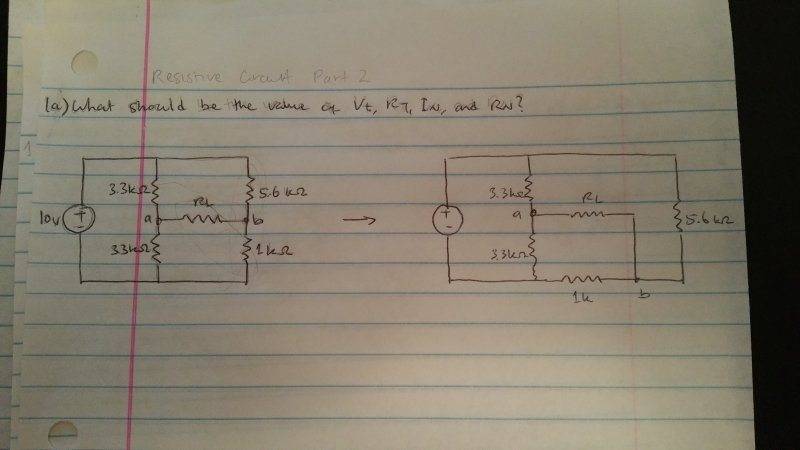 Resistive Circuit Part 2
1a) What should be the value of Vt, RT, IN, and RN?
1
3.3kΩ 5.6 kΩ 3.3kΩ RL
RL
10V a b a 5.6kΩ
3.3kΩ 1kΩ 3.3kΩ
1k b